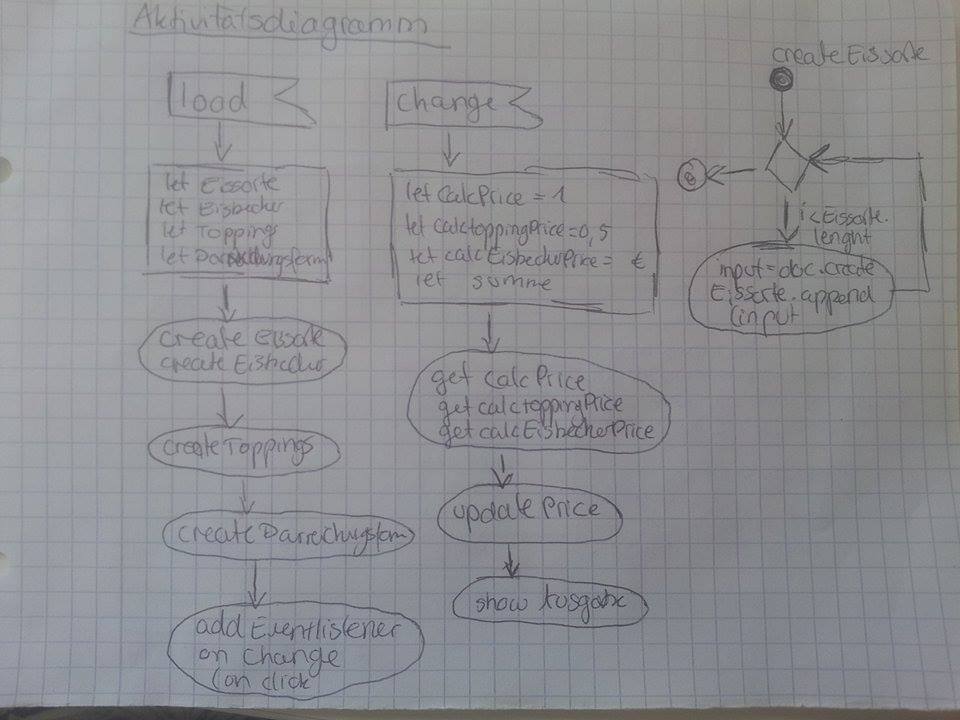 Aktivitätsdiagramm
load
let Eissorte
let Eisbecher
let Toppings
let Darreichungsform
create Eissorte
create Eisbecher
create Toppings
create Darreichungsform
add Eventlistener
on change
(on click
change
let CalcPrice = 1
let calctoppingPrice=0,5
let calcEisbecherPrice= €
let summe
get CalcPrice
get calctoppingPrice
get calcEisbecherPrice
update Price
show Ausgabe
create Eissorte
i<Eissorte.
lenght
input=doc.create
Eissorte.append
(input